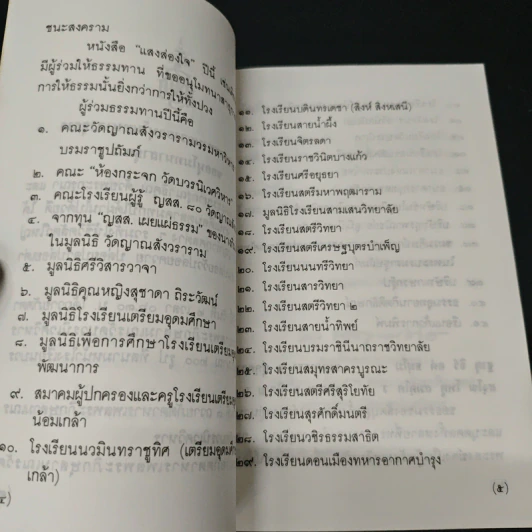 ชนะสงคราม
หนังสือ "แสงส่องใจ" ปีนี้
มีผู้ร่วมให้ธรรมทาน ที่ขออนุโมทนา
การให้ธรรมนั้นยิ่งกว่าการให้ทั้งปวง
ผู้ร่วมธรรมทานปีนี้คือ
๑. คณะวัดญาณสังวรารามวรมหาวิหาร
บรมราชูปถัมภ์
๒. คณะ "ห้องกระจก วัดบวรนิเวศวิหาร"
๓. คณะโรงเรียนผู้รู้ ญสส. ๘๐ วัดญาณ
๔. จากทุน "ญสส. เผยแผ่ธรรม" ของ
ในมูลนิธิ วัดญาณสังวราราม
๕. มูลนิธิศรีวิสารวาจา
๖. มูลนิธิคุณหญิงสุชาดา ถิระวัฒน์
๗. มูลนิธิโรงเรียนเตรียมอุดมศึกษา
๘. มูลนิธิเพื่อการศึกษาโรงเรียน
พัฒนาการ
๙. สมาคมผู้ปกครองและครูโรงเรียนเตรียม
น้อมเกล้า
๑๐. โรงเรียนนวมินทราชูทิศ (เตรียมอุดม
เกล้า)
๑๑. โรงเรียนบดินทรเดชา (สิงห์ สิงหเสนี)
๑๒. โรงเรียนสายน้ำผึ้ง
๑๓. โรงเรียนจิตรลดา
๑๔. โรงเรียนราชวินิตบางแก้ว
๑๕. โรงเรียนศรีอยุธยา
๑๖. โรงเรียนสตรีมหาพฤฒาราม
๑๗. มูลนิธิโรงเรียนสามเสนวิทยาลัย
๑๘. โรงเรียนสตรีวิทยา
๑๙. โรงเรียนสตรีเศรษฐบุตรบำเพ็ญ
๒๐. โรงเรียนนนทรีวิทยา
๒๑. โรงเรียนสารวิทยา
๒๒. โรงเรียนสตรีวิทยา ๒
๒๓. โรงเรียนสายน้ำทิพย์
๒๔. โรงเรียนบรมราชินีนาถราชวิทยาลัย
๒๕. โรงเรียนสมุทรสาครบูรณะ
๒๖. โรงเรียนสตรีศรีสุริโยทัย
๒๗. โรงเรียนสุรศักดิ์มนตรี
๒๘. โรงเรียนวชิรธรรมสาธิต
๒๙. โรงเรียนดอนเมืองทหารอากาศบำรุง
(๕)